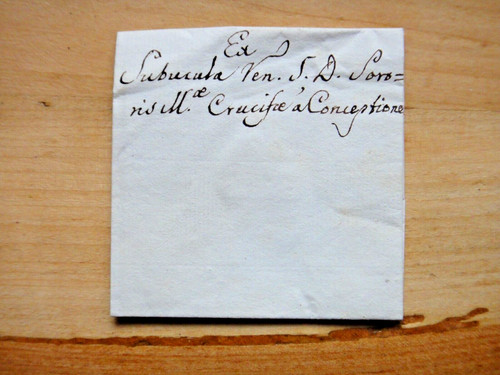 Ex
Subucula Ven. S. D. Soro=
ris M.æ Crucifæ a Conceptione